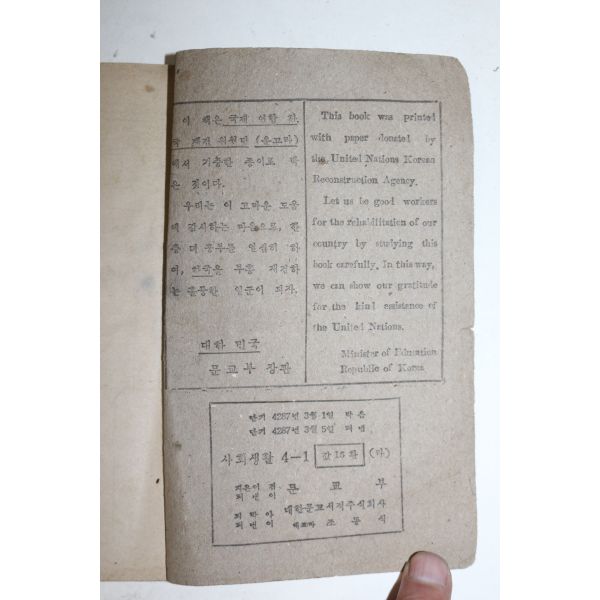 이 책은 국제 연합 한
국 재건 위원단 (운끄라)
에서 기증한 종이로 박
은 것이다.
우리는 이 고마운 도움
에 감사하는 마음으로, 한
층 더 공부를 열심히 하
여, 한국을 부흥 재건하
는 훌륭한 일군이 되자.
대한 민국
문교부 장관
This book was printed
with paper donated by
the United Nations Korean
Reconstruction Agency.
Let us be good workers
for the rehabilitation of our
country by studying this
book carefully. In this way,
we can show our gratitude
for the kind assistance of
the United Nations.
Minister of Education
Republic of Korea
단기 4287년 3월 1일 박음
단기 4287년 3월 5일 펴냄
사회생활 4-1 값 16환
지은이 겸
펴낸이 문교부
펴낸이 대한문교서적주식회사
대표자 조동식